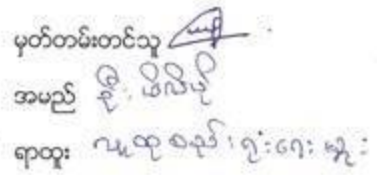 မှတ်တမ်းတင်သူ
အမည် ဦး ဖိလိပ်
ရာထူး လူထုစည်းရုံးရေးမှူး